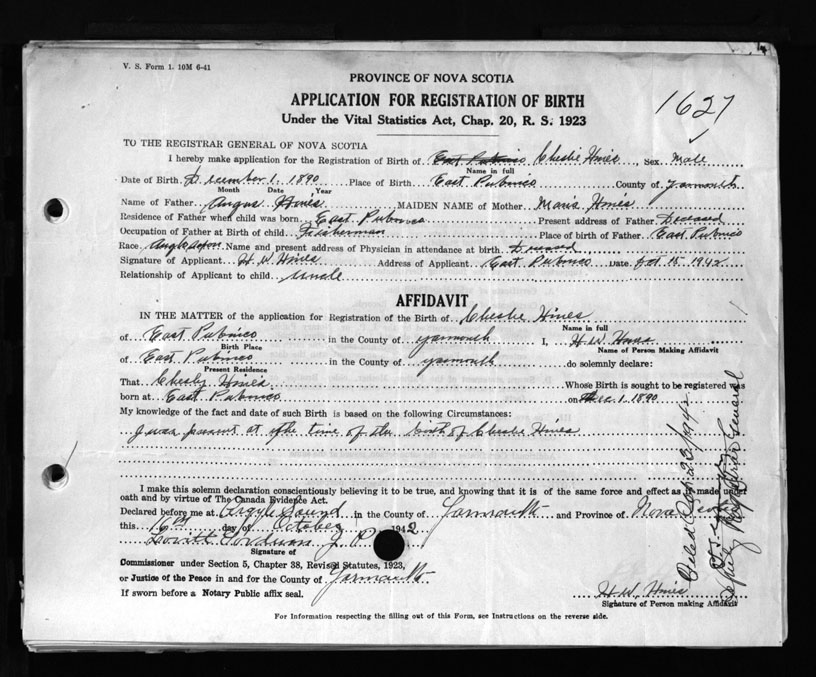 V. S. Form 1. 10M 6-41
PROVINCE OF NOVA SCOTIA
APPLICATION FOR REGISTRATION OF BIRTH
1627
Under the Vital Statistics Act, Chap. 20, R. S. 1923
TO THE REGISTRAR GENERAL OF NOVA SCOTIA
I hereby make application for the Registration of Birth of East Pubnico Cheslie Hines, Sex Male
Name in full
Date of Birth December 1. 1890 Place of Birth East Pubnico County of Yarmouth
Month Date Year
Name of Father Angus Hines MAIDEN NAME of Mother Maria Hines
Residence of Father when child was born East Pubnico Present address of Father Deceased
Occupation of Father at Birth of child Fisherman Place of birth of Father East Pubnico
Race Name and present address of Physician in attendance at birth
Signature of Applicant H W Hines Address of Applicant East Pubnico Date Oct 15 1942
Relationship of Applicant to child Uncle
AFFIDAVIT
IN THE MATTER of the application for Registration of the Birth of Cheslie Hines
Name in full
of East Pubnico in the County of Yarmouth I, H W Hines
Birth Place Name of Person Making Affidavit
of East Pubnico in the County of Yarmouth do solemnly declare:
Present Residence
That Chesley Hines Whose Birth is sought to be registered was
born at East Pubnico on Dec 1. 1890
My knowledge of the fact and date of such Birth is based on the following Circumstances:
I was present at the time of the birth of Cheslie Hines
I make this solemn declaration conscientiously believing it to be true, and knowing that it is of the same force and effect as made under
oath and by virtue of The Canada Evidence Act.
Declared before me at Argyle Sound in the County of Yarmouth and Province of Nova
this 16th day of October 1942
J. P.
Signature of
Commissioner under Section 5, Chapter 38, Revised Statutes, 1923,
or Justice of the Peace in and for the County of Yarmouth
If sworn before a Notary Public affix seal.
H. W. Hines
Signature of Person making Affidavit
For Information respecting the filling out of this Form, see Instructions on the reverse side.
Deputy Registrar General